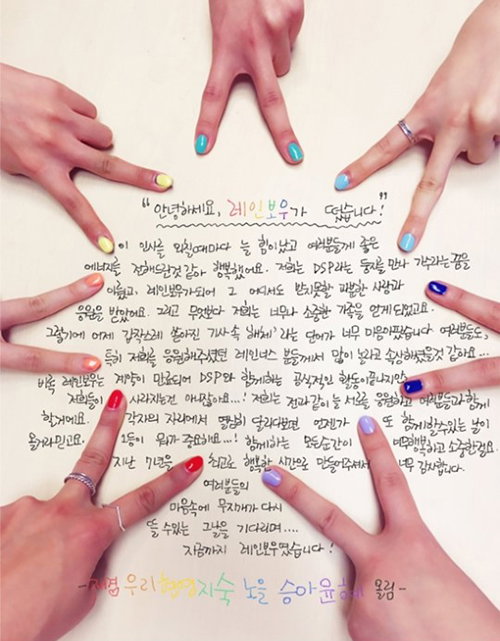 "안녕하세요, 레인보우가 떴습니다!"
이 인사를 외칠때마다 늘 힘이났고 여러분들께 좋은
에너지를 전해드릴것 같아 행복했어요. 저희는 DSP라는 둥지를 만나 가수라는 꿈을
이뤘고, 레인보우가되어 그 어디서도 받지못할 과분한 사랑과
응원을 받았어요. 그리고 무엇보다 저희는 너무나 소중한 가족을 얻게 되었고요.
그렇기에 어제 갑작스레 쏟아진 기사속 '해체'라는 단어가 너무 마음아팠습니다 여러분들도,
특히 저희를 응원해주셨던 레인너스 분들께서 많이 놀라고 속상해셨을것 같아요...
비록 레인보우는 계약이 만료되어 DSP와 함께하는 공식적인 활동이 끝나지만
저희들이 사라지는건 아니잖아요...! 저희는 전과같이 늘 서로를 응원하고 여러분들과 함께
할거에요. 각자의 자리에서 열심히 달리다보면 언젠가 또 함께할수있는 날이
올거라믿고요. 1등이 뭐가 중요하요...! 함께하는 모든순간이 너무행복하고 소중한걸요.
지난 7년을 최고로 행복한 시간으로 만들어주셔서 너무 감사합니다.
여러분들의
마음속에 무지개가 다시
뜰 수있는 그날을 기다리며....
지금까지 레인보우였습니다!
-재경 우리 현영 지숙 노을 승아 윤혜 올림-